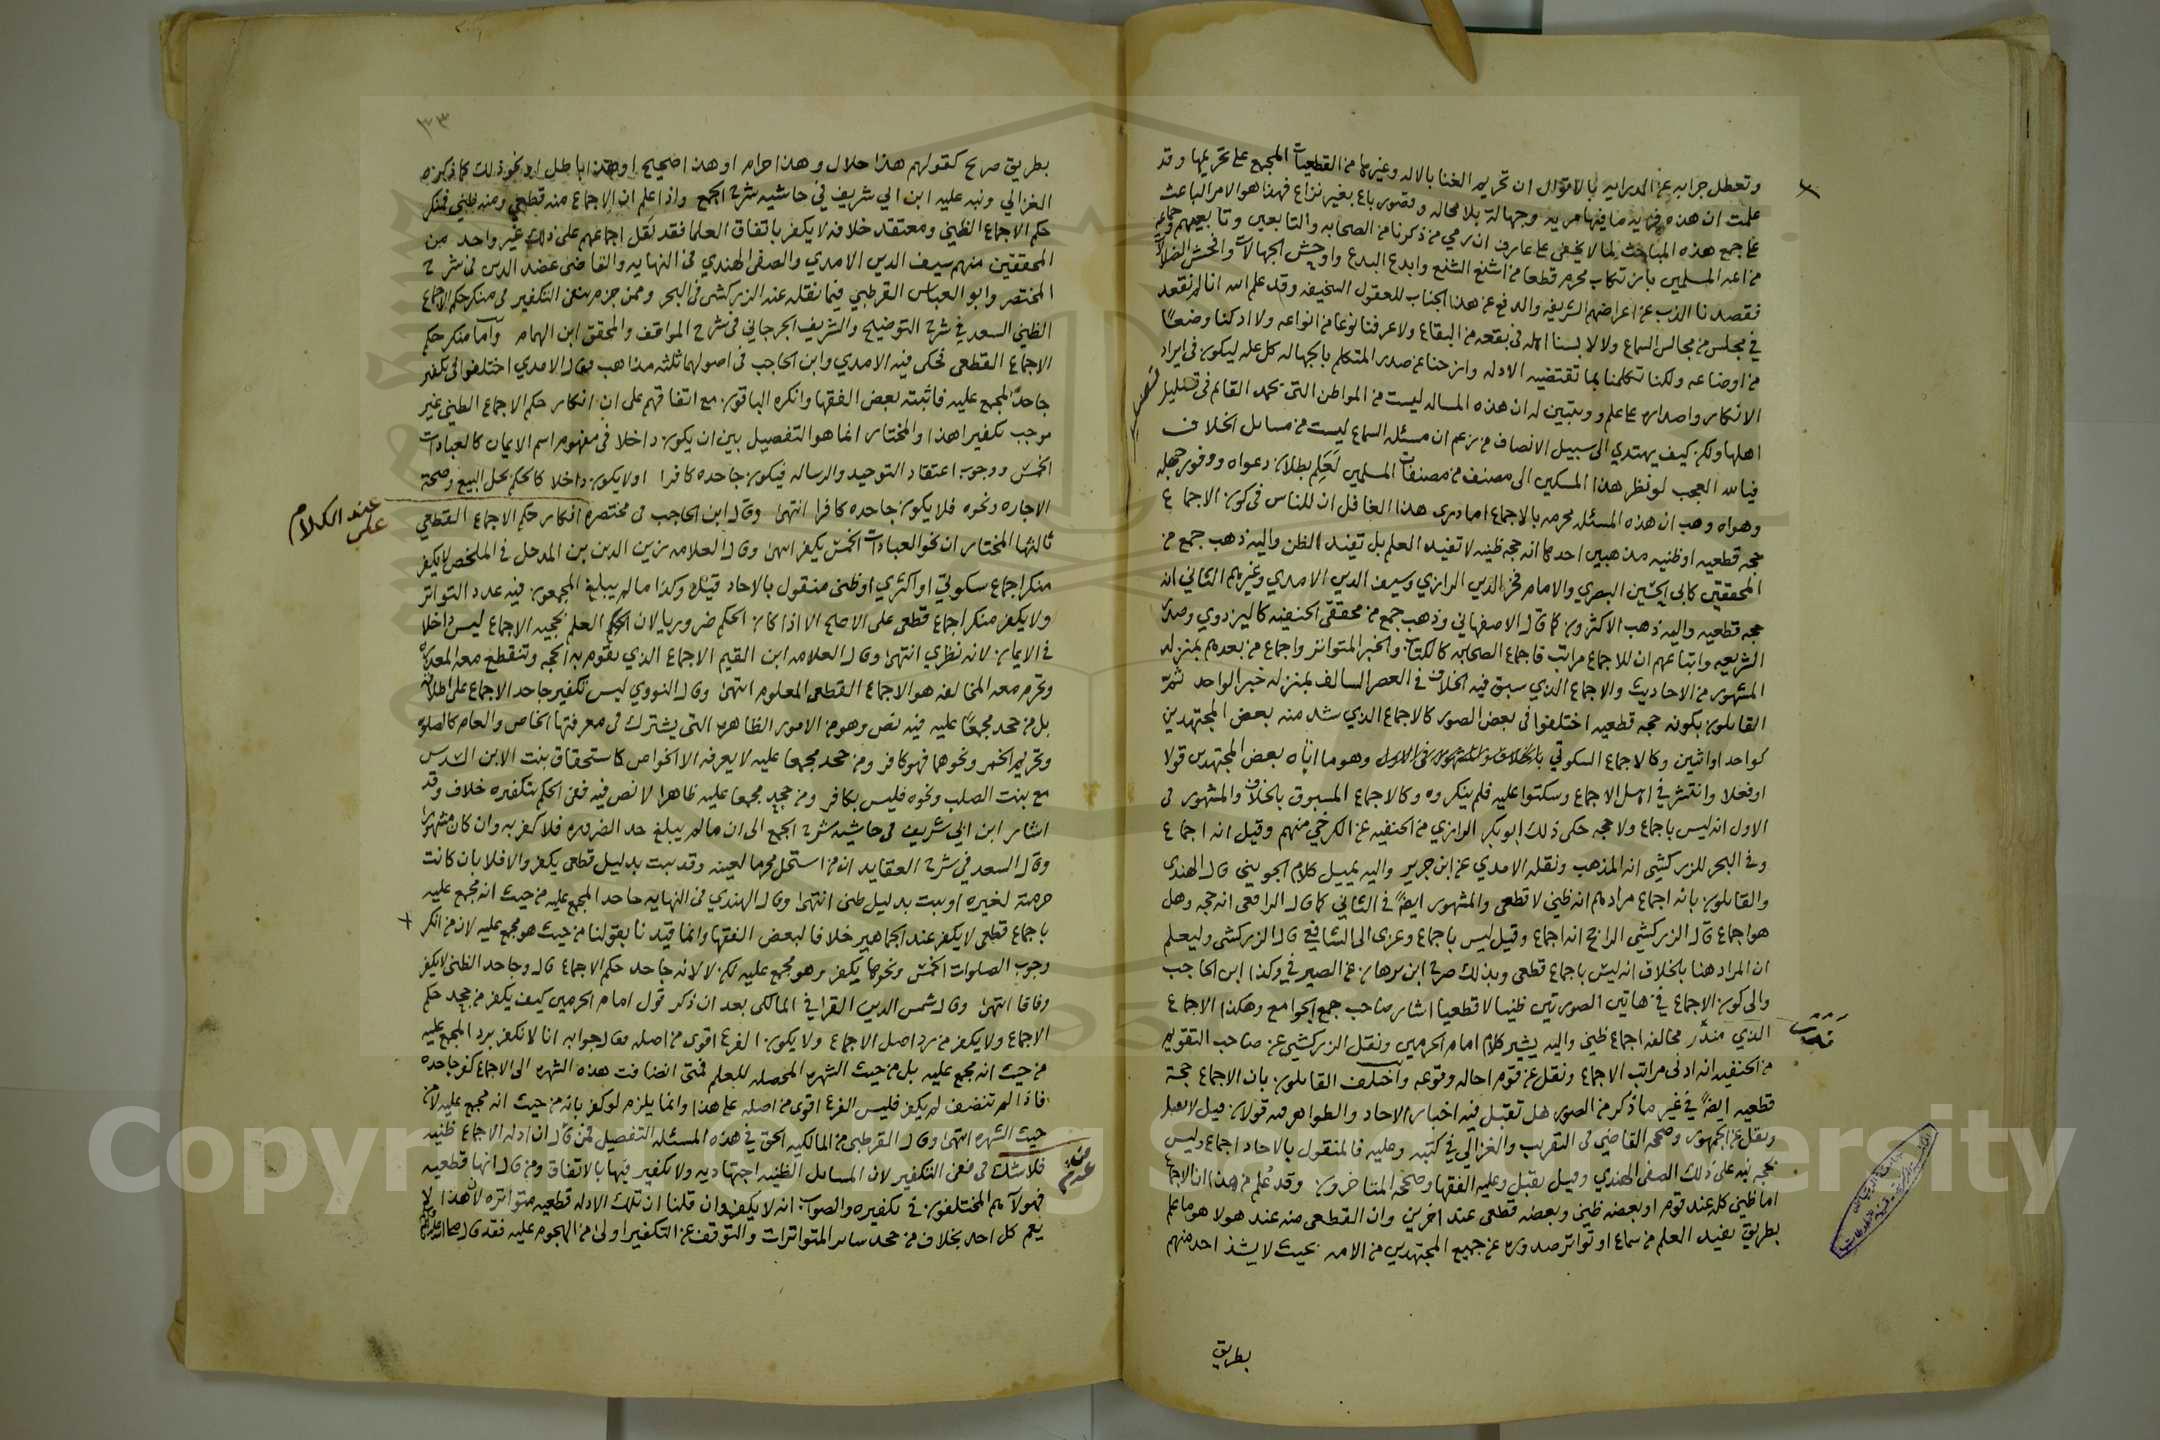 وتعطل جرابه عن الدرايه بالاقوال ان تحريم الغنا بالاله وغيرها من القطعيات المجمع على تحريمها وقد
علمت ان هذه فريه ما فيها مريه وجهالة بلا محاله وقصور باع بغير نزاع فهذا هو الامر الباعث
على جمع هذه المباحث لما لا يخفى على عارف ان رمي من ذكرنا من الصحابه والتابعين وتابعيهم وجماعه
من ائمه المسلمين بارتكاب محرم قطعا من اشنع الشنع وابدع البدع واوحش الجهالات وافحش الضلالات
فقصدنا الذب عن اعراضهم الشريفه والدفع عن هذا الجناب للعقول السخيفه وقد علم الله انا لم نقعد
في مجلس من مجالس السماع ولا لابسنا اهله في بقعه من البقاع ولا عرفنا نوعا من انواعه ولا ادركنا وضعًا
من اوضاعه ولكنا تكلمنا بما تقتضيه الادله وازحنا عن صدر المتكلم بالجهاله كل عله ليكون في ايراد
الانكار واصداره على علم ويتبين له ان هذه المساله ليست من المواطن التي يحمد القائم في تضليل
اهلها ولكن كيف يهتدي الى سبيل الانصاف من زعم ان مسئله السماع ليست من مسائل الخلاف
فيالله العجب لو نظر هذا المسكين الى مصنف من مصنفات المسلمين لَعَلِم بطلان دعواه ووفور جهله
وهواه وهب ان هذه المسئله محرمه بالاجماع اما درى هذا الغافل ان للناس في كون الاجماع
حجه قطعيه او ظنيه مذهبين احدهما انه حجه ظنيه لا تفيد العلم بل تفيد الظن واليه ذهب جمع من
المحققين كابي الحسين البصري والامام فخر الدين الرازي وسيف الدين الامدي وغيرهم الثاني انه
حجه قطعيه واليه ذهب الاكثرون كما قال الاصفهاني وذهب جمع من محققي الحنفيه كالبزدوي وصدر
الشريعه واتباعهم ان للاجماع مراتب فاجماع الصحابه كالكتاب والخبر المتواتر واجماع من بعدهم بمنزله
المشهور من الاحاديث والاجماع الذي سبق فيه الخلاف في العصر السالف بمنزله خبر الواحد ثمّ
القايلون بكونه حجه قطعيه اختلفوا في بعض الصور كالاجماع الذي شذ منه بعض المجتهدين
كواحد او اثنين وكالاجماع السكوتي وهو ما اتاه بعض المجتهدين قولا
او فعلا وانتشر في اهل الاجماع وسكتوا عليه فلم ينكروه وكالاجماع المسبوق بالخلاف والمشهور في
الاول انه ليس باجماع ولا حجه حكى ذلك ابو بكر الرازي من الحنفيه عن الكرخي منهم وقيل انه اجماع
وفي البحر للزركشي انه المذهب ونقله الامدي عن ابن جرير واليه يميل كلام الجويني قال الهندي
والقايلون بانه اجماع مرادهم انه ظني لا قطعي والمشهور ايضًا في الثاني كما قال الرافعي انه حجه وهل
هو اجماع قال الزركشي الراجح انه اجماع وقيل ليس باجماع وعزى الى الشافعي قال الزركشي وليعلم
ان المراد هنا بالخلاف انه ليس باجماع قطعي وبذلك صرح ابن برهان عن الصيرفي وكذا ابن الحاجب
والى كون الاجماع في هاتين الصورتين ظنيا لا قطعيا اشار صاحب جمع الجوامع وهكذا الاجماع
الذي مخالفه اجماع ظني واليه يشير كلام امام الحرمين ونقل الزركشي عن صاحب التقويم
من الحنفيه انه ادنى مراتب الاجماع ونقل عن قوم احاله وقوعه واختلف القايلون بان الاجماع حجة
قطعيه ايضًا في غير ما ذكر من الصور هل تقبل فيه اخبار الاحاد والظواهر فيه قولان قيل لا يقبل
ونقل عن الجمهور وصححه القاضي في التقريب والغزالي في كتبه وعليه فالمنقول بالاحاد اجماع وليس
بحجه نبه على ذلك الصفي الهندي وقيل يقبل وعليه الفقها وصححه المتاخرون وقد عُلم من هذا ان الاجماع
اما ظني كله عند قوم او بعضه ظني وبعضه قطعي عند اخرين وان القطعي منه عند هولا هو ما علم
بطريق تفيد العلم من سماع او تواتر صدوره عن جميع المجتهدين من الامه بحيث لا يشذ احد منهم
بطريق
٣٣
بطريق صريح كقولهم هذا حلال وهذا حرام او هذا صحيح او هذا باطل او نحو ذلك كما ذكره
الغزالي ونبه عليه ابن ابي شريف في حاشيه شرح الجمع واذا علم ان الاجماع منه قطعي ومنه ظني فمنكر
حكم الاجماع الظني ومعتقد خلافه لا يكفر باتفاق العلما فقد نقل اجماعهم على ذلك غير واحد من
المحققين منهم سيف الدين الامدي والصفي الهندي في النهايه والقاضي عضد الدين في شرح
المختصر وابو العباس القرطبي فيما نقله عنه الزركشي في البحر وممن جزم بنفي التكفير في منكر حكم الاجماع
الظني السعد في شرح التوضيح والشريف الجرجاني في شرح المواقف والمحقق ابن الهمام واما منكر حكم
الاجماع القطعي فحكى فيه الامدي وابن الحاجب في اصولهما ثلثه مذاهب قال الامدي اختلفوا في تكفير
جاحد المجمع عليه فاثبته بعض الفقها وانكره الباقون مع اتفاقهم على ان انكار حكم الاجماع الظني غير
موجب تكفيرا هذا والمختار انما هو التفصيل بين ان يكون داخلا في مفهوم اسم الايمان كالعبادات
الخمس ووجوب اعتقاد التوحيد والرساله فيكون جاحده كافرا او لا يكون داخلا كالحكم بحل البيع وصحة
الاجاره ونحوه فلا يكون جاحده كافرا انتهى وقال ابن الحاجب في مختصره انكار حكم الاجماع القطعي
عند الكلام على
ثالثها المختار ان نحو العبادات الخمس يكفر انتهى وقال العلامه زين الدين بن المدحل في الملخص لا يكفر
منكر اجماع سكوتي او اكثري او ظني منقول بالاحاد قيل وكذا ما لم يبلغ المجمعون فيه عدد التواتر
ولا يكفر منكر اجماع قطعي على الاصح الا اذا كان الحكم ضروريا لان العلم بحجيه الاجماع ليس داخلا
في الايمان لانه نظري انتهى وقال العلامه ابن القيم الاجماع الذي تقوم به الحجه وتنقطع معه المعذره
وتحرم معه المخالفه هو الاجماع القطعي المعلوم انتهى وقال النووي ليس تكفير جاحد الاجماع على اطلاقه
بل من جحد مجمعًا عليه فيه نص وهو من الامور الظاهره التي يشترك في معرفتها الخاص والعام كالصلوه
وتحريم الخمر ونحوهما فهو كافر ومن جحد مجمعا عليه لا يعرفه الا الخواص كاستحقاق بنت الابن السدس
مع بنت الصلب ونحوه فليس بكافر ومن جحد مجمعا عليه ظاهرا لا نص فيه ففي الحكم بتكفيره خلاف وقد
اشار ابن ابي شريف في حاشيه شرح الجمع الى ان ما لم يبلغ حد الضروره فلا كفر به وان كان مشهورا
وقال السعد في شرح العقايد ان من استحل محرما لعينه وقد ثبت بدليل قطعي يكفر والا فلا بان كانت
حرمته لغيره او ثبت بدليل ظني انتهى وقال الهندي في النهايه جاحد المجمع عليه من حيث انه مجمع عليه
باجماع قطعي لا يكفر عند الجماهير خلافا لبعض الفقها وانما قيدنا بقولنا من حيث هو مجمع عليه لان من انكر
وجوب الصلوات الخمس ونحوها يكفر وهو مجمع عليه لكن لا لانه جاحد حكم الاجماع قال وجاحد الظني لا يكفر
وفاقا انتهى وقال شمس الدين القرافي المالكي بعد ان ذكر قول امام الحرمين كيف يكفر من جحد حكم
الاجماع ولا يكفر من رد اصل الاجماع ولا يكون الفرع اقوى من اصله فقال جوابه انا لا نكفر برد المجمع عليه
من حيث انه مجمع عليه بل من حيث الشهره المحصله للعلم فمتى انضافت هذه الشهره الى الاجماع كفر جاحده
فاذا لم تنضف لم يكفر فليس الفرع اقوى من اصله على هذا وانما يلزم لو كفر بانه من حيث انه مجمع عليه لا من
حيث الشهره انتهى وقال القرطبي من المالكيه الحق في هذه المسئله التفصيل فمن قال ان ادله الاجماع ظنيه
فلا شك في نفي التكفير لان المسايل الظنيه اجتهاديه ولا تكفير فيها بالاتفاق ومن قال انها قطعيه
فهولاء هم المختلفون في تكفيره والصواب انه لا يكفر وان قلنا ان تلك الادله قطعيه متواتره لان هذا لا
يعم كل احد بخلاف من جحد ساير المتواترات والتوقف عن التكفير اولى من الهجوم عليه فقد قال صلى الله عليه وسلم